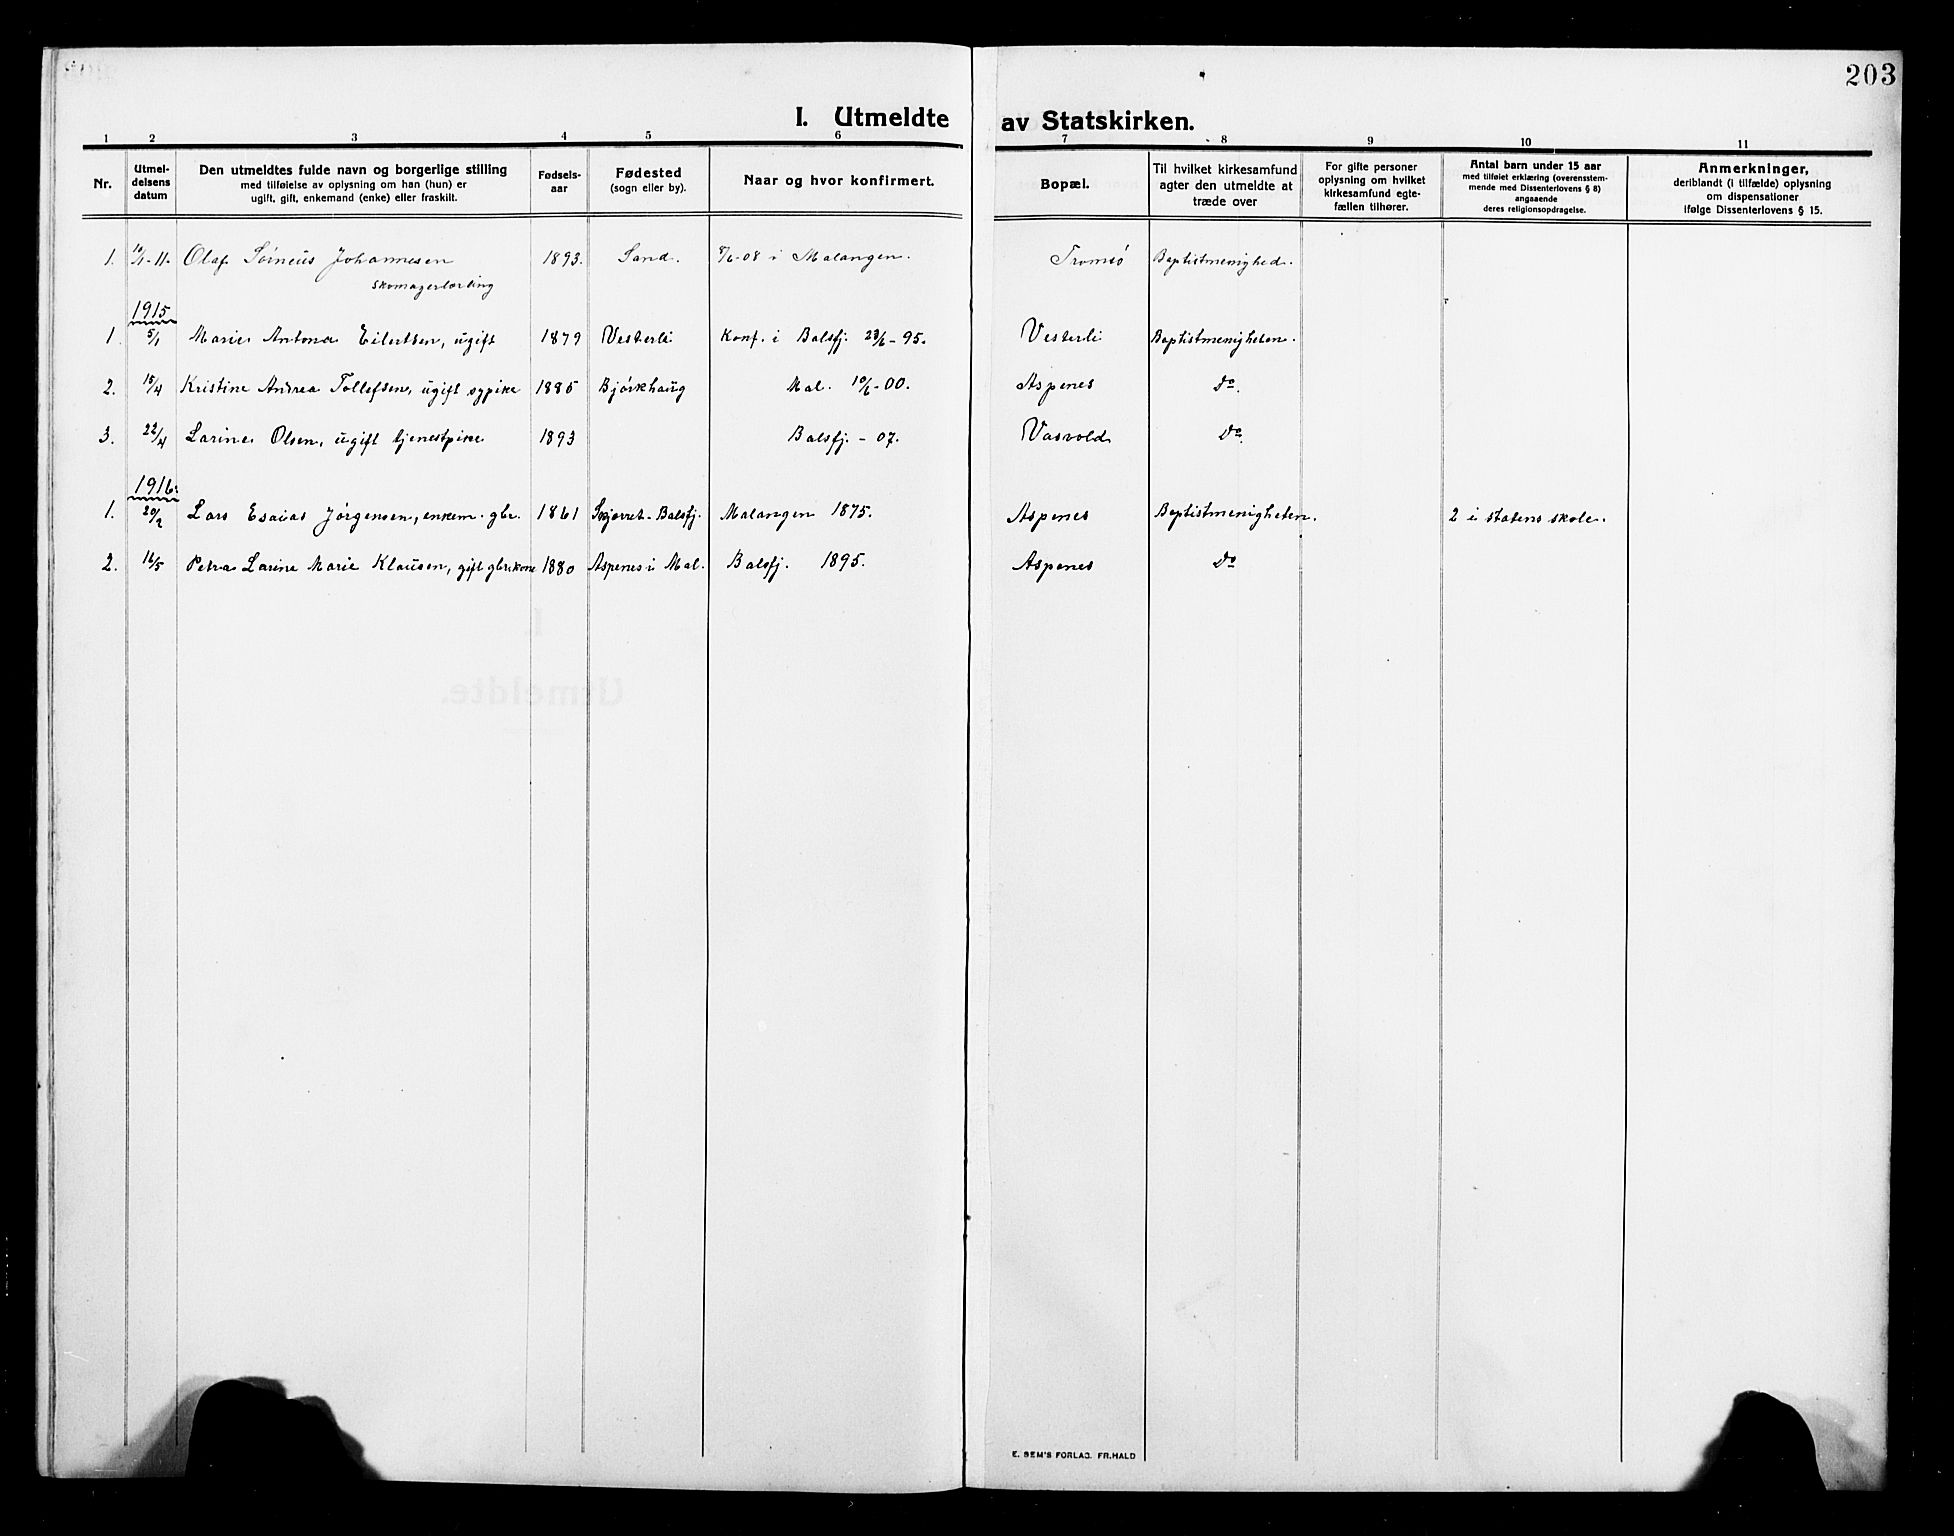 203
I. Utmeldte av Statskirken.
1 2 3 4 5 6 7 8 9 10 11
Nr.
Utmel-
delsens
datum
Den utmeldtes fulde navn og borgerlige stilling
med tilføielse av oplysning om han (hun) er
ugift, gift, enkemand (enke) eller fraskilt.
Fødsels-
aar
Fødested
(sogn eller by).
Naar og hvor konfirmert.
Bopæl.
Til hvilket kirkesamfund
agter den utmeldte at
træde over
For gifte personer
oplysning om hvilket
kirkesamfund egte-
fællen tilhører.
Antal barn under 15 aar
med tilføiet erklæring (overensstem-
mende med Dissenterlovens § 8)
angaaende
deres religionsopdragelse.
Anmerkninger,
deriblandt (i tilfælde) oplysning
om dispensationer
ifølge Dissenterlovens § 15.
1. 10/1-11. Olaf Sörineus Johannesen 1893. Sand. 8/6-08 i Malangen. Tromsö Baptistmenighed.
skomagerlærling
1915
1. 5/1 Marie Antona Eilertsen, ugift 1879 Vesterli Konf. i Balsfj. 23/6-95. Vesterli Baptistmenigheten.
2. 15/4 Kristine Andrea Tollefsen, ugift sypike 1885 Bjórkhaug Mal. 10/6-00. Aspenes do.
3. 22/4 Larine Olsen, ugift tjenestpike 1893 Balsfj. - 07. Vasvold do.
1916.
1. 20/2 Lars Esaias Jörgensen, enkem. gbr. 1861 Skjævret-Balsfj. Malangen 1875. Aspenes Baptistmenigheten. 2 i statens skole.
2. 16/5 Petra Larine Marie Klausen, gift gbr.kone 1880 Aspenes i Mal. Balsfj. 1895. Aspenes do
E. SEM'S FORLAG. FR.HALD